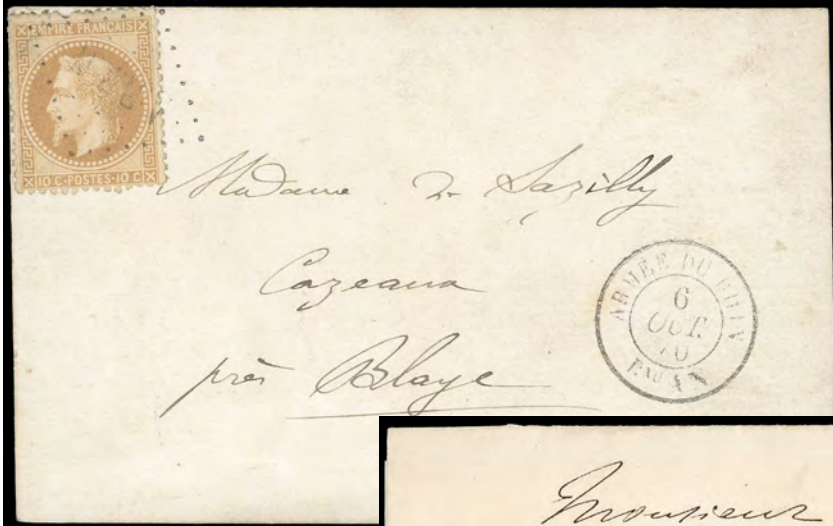 EMPIRE FRANÇAIS
10 C·POSTES·10 C
Madame de Sazilly
Cazeaux
près Blaye
ARMÉE DU RHIN
6
OCT.
70
Monsieur